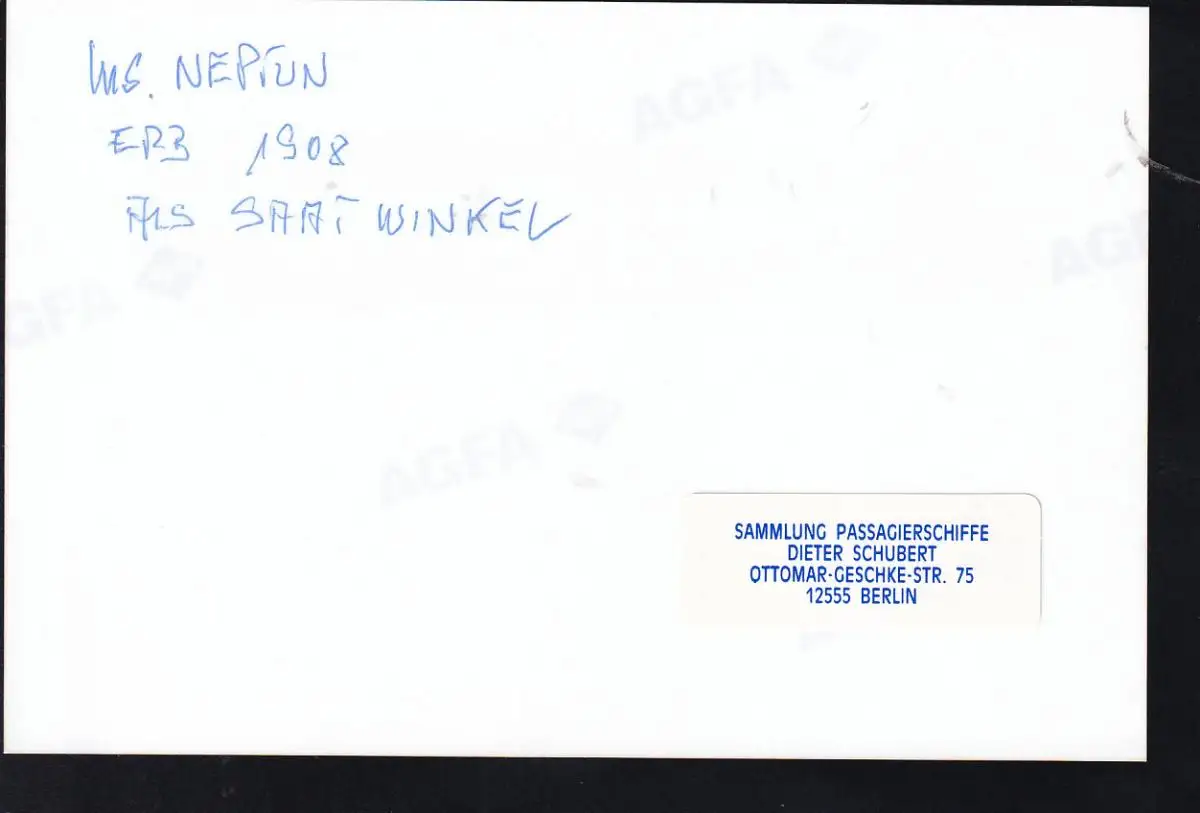 MS. NEPTUN
ERB 1908
ALS SAATWINKEL
AGFA
AGFA
AGFA
AGFA
SAMMLUNG PASSAGIERSCHIFFE
DIETER SCHUBERT
OTTOMAR-GESCHKE-STR. 75
12555 BERLIN